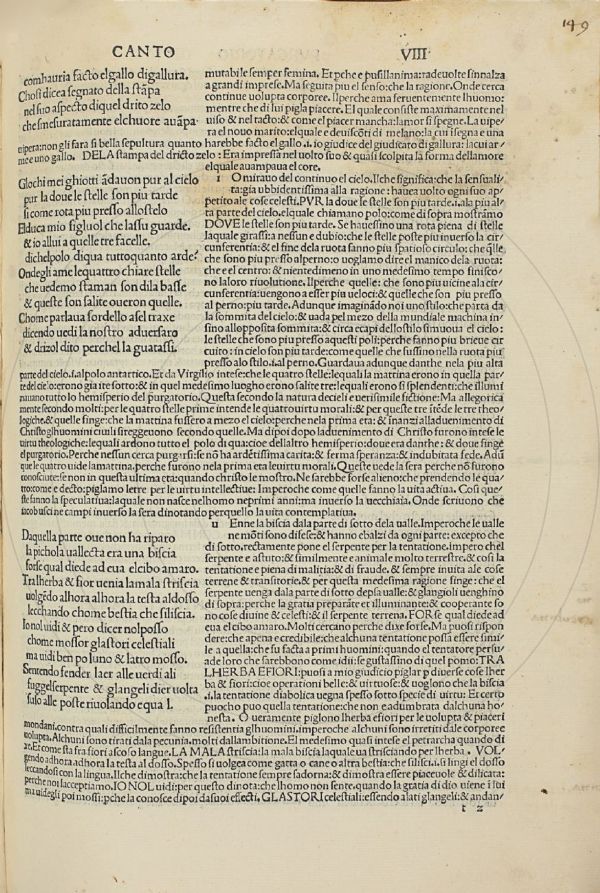 149
CANTO VIII
combauria facto elgallo digallura.
Chosi dicea segnato della stāpa
nel suo aspecto diquel drito zelo
che smesuratamente elchuore auāpa.
mutabile semper femina. Et pche e pusillanima: radeuolte sinnalza
a grandi imprese. Ma seguita piu el senso: che la ragione. Onde cerca
continue uolupta corporee. Ilperche ama feruentemente lhuomo:
mentre che di lui pigla piacere. El quale consiste maximamente nel
uiso & nel tacto: & come el piacer mancha: lamor si spegne. La uipe
ra el nouo marito: elquale e deuisconti di melano: la cui isegna e una
uipera: non gli fara si bella sepultura quanto harebbe facto el gallo .i. io giudice del giudicato di gallura: la cui ar
me e uno gallo. DELA stampa del dricto zelo: Era impressa nel uolto suo & quasi scolpita la forma dellamore
elquale auampaua el core.
Glochi mei ghiotti ādauon pur al cielo
pur la doue le stelle son piu tarde
si come rota piu presso allo stelo
Educa mio figluol che lassu guarde.
& io allui a quelle tre facelle.
dichelpolo diqua tuttoquanto arde.
Ondegli ame lequattro chiare stelle
che uedemo staman son dila basse
& queste son salite oueron quelle.
Chome parlaua sordello asel traxe
dicendo uedi la nostro aduersaro
& drizol dito perchel la guatassi.
O mirato del continuo el cielo. Ilche significa: che la sensuali
ta: gia ubbidentissima alla ragione: hauea uolto ogni suo ap
petito alle cose celesti. PVR la doue le stelle son piu tarde .i. ala piu al
ta parte del cielo. elquale chiamano polo: come di sopra mostrāmo
DOVE le stelle son piu tarde. Se hauessino una rota piena di stelle
laquale girassi: a nessun e dubbio: che le stelle poste piu inuerso la cir
cunferentia: & el fine dela ruota fanno piu spatioso circulo: che q̄lle
che sono piu presso alperno: o uogliamo dire el manico dela ruota:
che e el centro: & nientedimeno in uno medesimo tempo finisco
no la loro riuolutione. Ilperche quelle: che sono piu uicine ala cir
cunferentia: uengono a esser piu ueloci: & quelle che son piu presso
al perno: piu tarde. Adunque imaginādo noi uno stilo: che parta da
la sommita del cielo: & uada pel mezo della mundiale machina in
sino alloposita sommita: & circa ecapi dello stilo si muoua el cielo:
le stelle che sono piu presso aquesti poli: perche fanno piu brieue cir
cuito: in cielo son piu tarde: come quelle che fussino nella ruota piu
presso alo stilo .i. al perno. Guardaua adunque danthe nela piu alta
parte del cielo .i. alpolo antartico. Et da Virgilio intese: che le quattro stelle: lequali la mattina erono in quella par
te del cielo: erono gia ite sotto: & in quel medesimo luogho erono salite tre: lequali erono si splendenti: che illumi
nauano tutto lo hemisperio del purgatorio. Questa secondo la natura decieli e uerisimile fictione: Ma allegorica
mente secondo molti: per le quatro stelle prime intende le quatro uirtu morali: & per queste tre ītēde le tre theo
logiche. & quelle finge: che la mattina fussero a mezo el cielo: perche nela prima eta: & inanzi alladuenimento di
Christo glhuomini ciuili si reggeuono secondo quelle. Ma dipoi dopo laduenimento di Christo furono intese le
uirtu theologiche: lequali ardono tutto el polo di qua: cioe dellaltro hemisperio: doue era danthe: & doue finge
el purgatorio. Perche nessun cerca purgarsi: se nō ha ardētissima carita: & ferma speranza: & indubitata fede. Adū
que le quatro uide lamattina, perche furono nela prima eta le uirtu morali. Queste uede la sera perche nō furono
conosciute: se non in questa ultima eta: quando christo le mostro. Ne sarebbe forse alieno: che prendendo le qua
tro: come e decto: piglamo letre per le uirtu intellectiue: Imperoche come quelle fanno la uita actiua. Cosi que
ste fanno la speculatiua: laquale non nasce nelhomo neprimi anni: ma inuerso la uecchiaia. Onde scriuono che
iacob uscine campi inuerso la sera dinotando perquello la uita contemplatiua.
Daquella parte oue non ha riparo
la pichola uallecta era una biscia
forse qual diede ad eua elcibo amaro.
Tra lherba & fior uenia lamala striscia
uolgēdo alhora alhora la testa aldosso
lecchando chome bestia che siliscia.
Io nol uidi & pero dicer nol posso
chome mossor glastori celestiali
ma uidi ben po luno & latro mosso.
Sentendo fender laer alle uerdi ali
suggel serpente & glangeli dier uolta
suso alle poste riuolando equa l.
Enne la biscia dala parte di sotto dela ualle. Imperoche le ualle
ne mōti sono difese: & hanno ebalzi da ogni parte: excepto che
di sotto. rectamente pone el serpente per la tentatione. impero chel
serpente e astuto: & similmente e animale molto terrestre. & cosi la
tentatione e piena di malitia: & di fraude. & sempre inuita ale cose
terrene & transitorie. & per questa medesima ragione finge: che el
serpente uenga dala parte di sotto depsa ualle: & glangioli uenghino
di sopra: perche la gratia preparāte et illuminante: & cooperante so
no cose diuine & celesti: & il serpente terrena. FOR se qual diede ad
eua el cibo amaro. Molti cercano perche dixe forse. Ma puossi rispon
dere: che apena e credibile: che alchuna tentatione possa essere simi
le a quella: che fu facta a primi huomini: quando el tentatore persu
ade loro che sarebbono come idii: se gustassino di quel pomo: TRA
LHERBA E FIORI: puossi a mio giudicio piglar p diuerse cose lher
ba & fiori: cioe operationi belle: & uirtuose: & uoglono che la biscia
.i. la tentatione diabolica uegna spesso sotto specie di uirtu: Et certo
puocho puo quella tentatione: che non e adumbrata dalchuna ho
nesta. O ueramente piglono lherba e fiori per le uolupta & piaceri
mondani. contra quali difficilmente fanno resistentia glhuomini. imperoche alchuni sono irretiti dale corporee
uolupta. Alchuni sono tirati dala pecunia. molti dallambitione. El medesimo quasi intese el petrarcha quando di
xe. Et come sta fra fiori ascoso langue. LA MALA striscia: la mala biscia laquale ua strisciando per lherba. VOL
gendo adhora adhora la testa al dosso. Spesso si uolge come gatta o cane o altra bestia: che si lisci .i. si lingi el dosso
leccandosi con la lingua. Ilche dimostra: che la tentatione sempre sadorna: & dimostra essere piaceuole & dilicata:
perche noi lacceptiamo. IO NOL uidi: per questo dinota: che lhomo non sente. quando la gratia di dio uiene ī lui
ma uidegli poi mossi: pche la conosce di poi da suoi effecti. GLASTORI celestiali: essendo alati glangeli: & andan
t 2